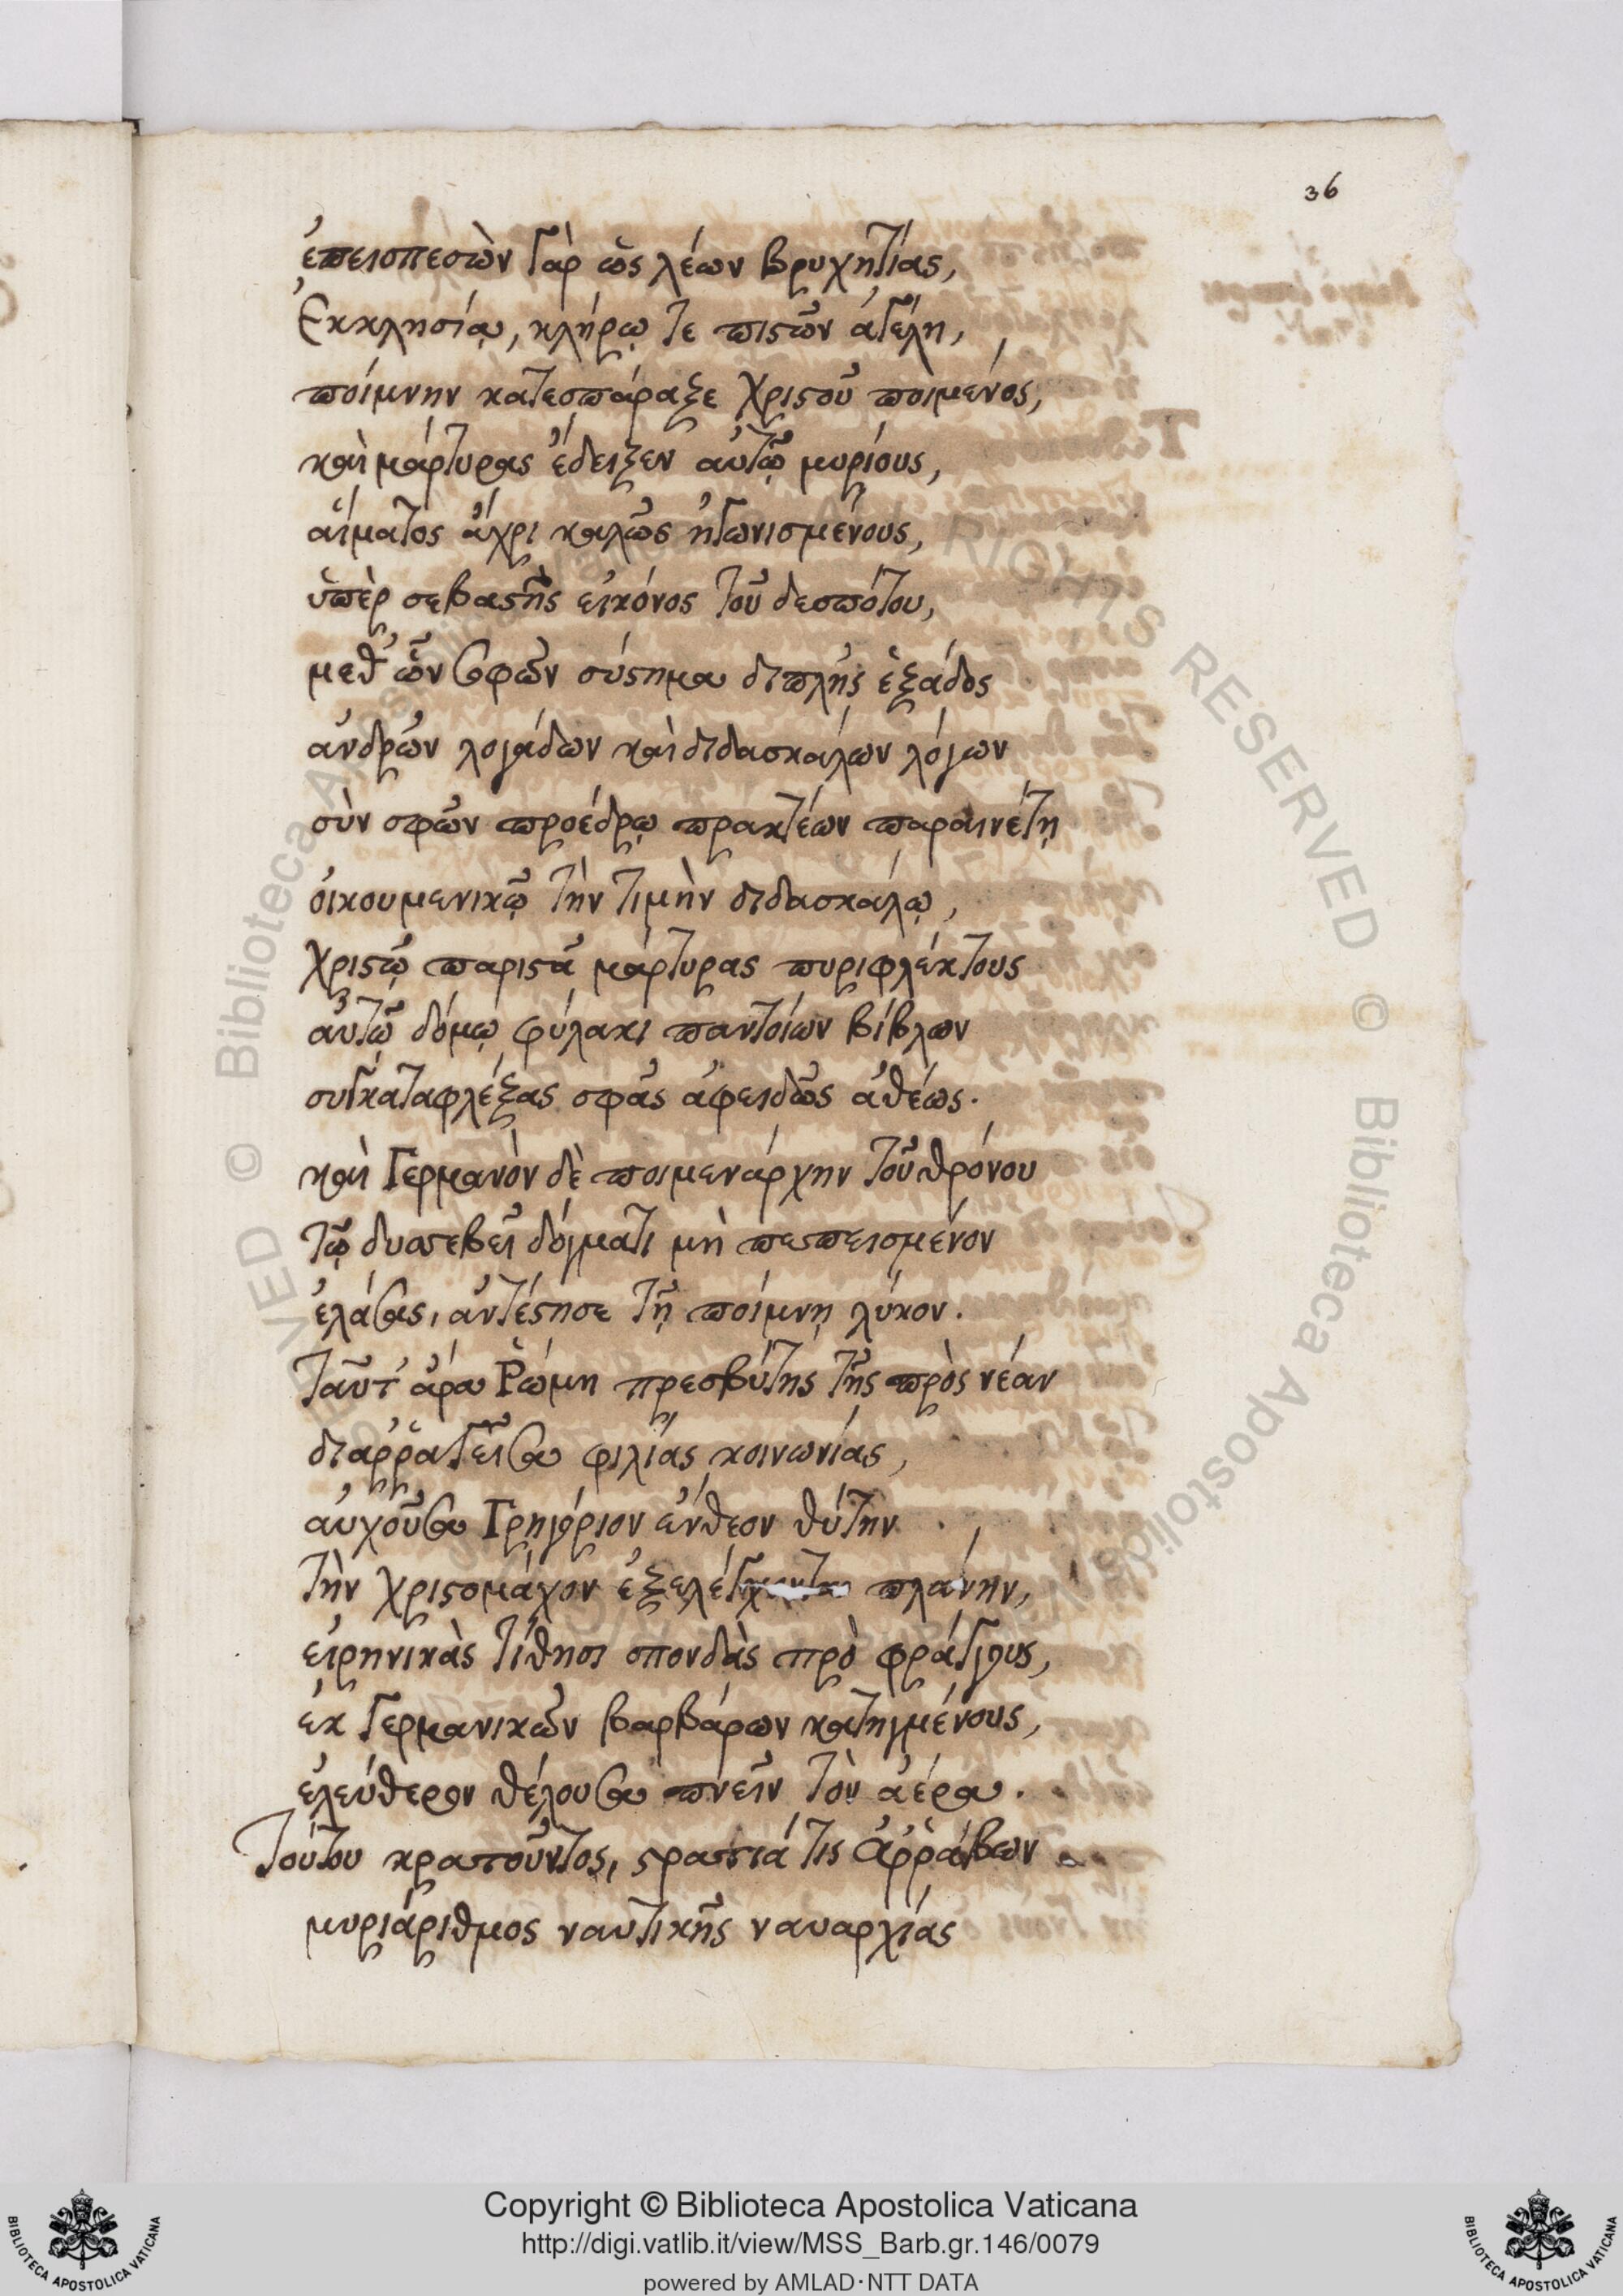 36
ἐπεισπεσὼν γὰρ ὡς λέων βρυχητίας,
Ἐκκλησίᾳ, κλήρῳ τε πιστῶν ἀγέλη,
ποίμνην κατεσπάραξε χριστοῦ ποιμένος,
καὶ μάρτυρας ἔδειξεν αὐτῷ μυρίους,
αἵματος ἄχρι καλῶς ἠγωνισμένους,
ὑπὲρ σεβαστῆς εἰκόνος τοῦ δεσπότου,
μεθ' ὧν σοφῶν σύστημα διπλῆς ἑξάδος
ἀνδρῶν λογάδων καὶ διδασκάλων λόγων
σὺν σφῶν προέδρῳ πρακτέων παραινέτῃ
οἰκουμενικῷ τὴν τιμὴν διδασκάλῳ,
χριστῷ παριστᾷ μάρτυρας πυριφλέκτους
αὐτῷ δόμῳ φύλακι παντοίων βίβλων
συγκαταφλέξας σφᾶς ἀφειδῶς ἀθέως.
καὶ Γερμανὸν δὲ ποιμενάρχην τοῦ θρόνου
τῷ δυσσεβεῖ δόγματι μὴ πεπεισμένον
ἐλάσας, ἀντέστησε τῇ ποίμνῃ λύκον.
Ταῦτ' ἄρα Ῥώμη πρεσβύτης τῆς πρὸς νέαν
διαῤῥαγεῖσα φιλίας κοινωνίας,
αὐχοῦσα Γρηγόριον ἔνθεον θύτην
τὴν χριστομάχον ἐξελέγχοντα πλάνην,
εἰρηνικὰς τίθησι σπονδὰς πρὸ φράγγους,
ἐκ Γερμανικῶν βαρβάρων κατηγμένους,
ἐλεύθερον θέλουσα πνεῖν τὸν ἀέρα.
Τούτου κρατοῦντος, στρατιά τις ἀῤῥάβων
μυριάριθμος ναυτικῆς ναυαρχίας
© Biblioteca Apostolica Vaticana ALL RIGHTS RESERVED © Biblioteca Apostolica
BIBLIOTECA APOSTOLICA VATICANA
Copyright © Biblioteca Apostolica Vaticana
http://digi.vatlib.it/view/MSS_Barb.gr.146/0079
powered by AMLAD·NTT DATA
BIBLIOTECA APOSTOLICA VATICANA